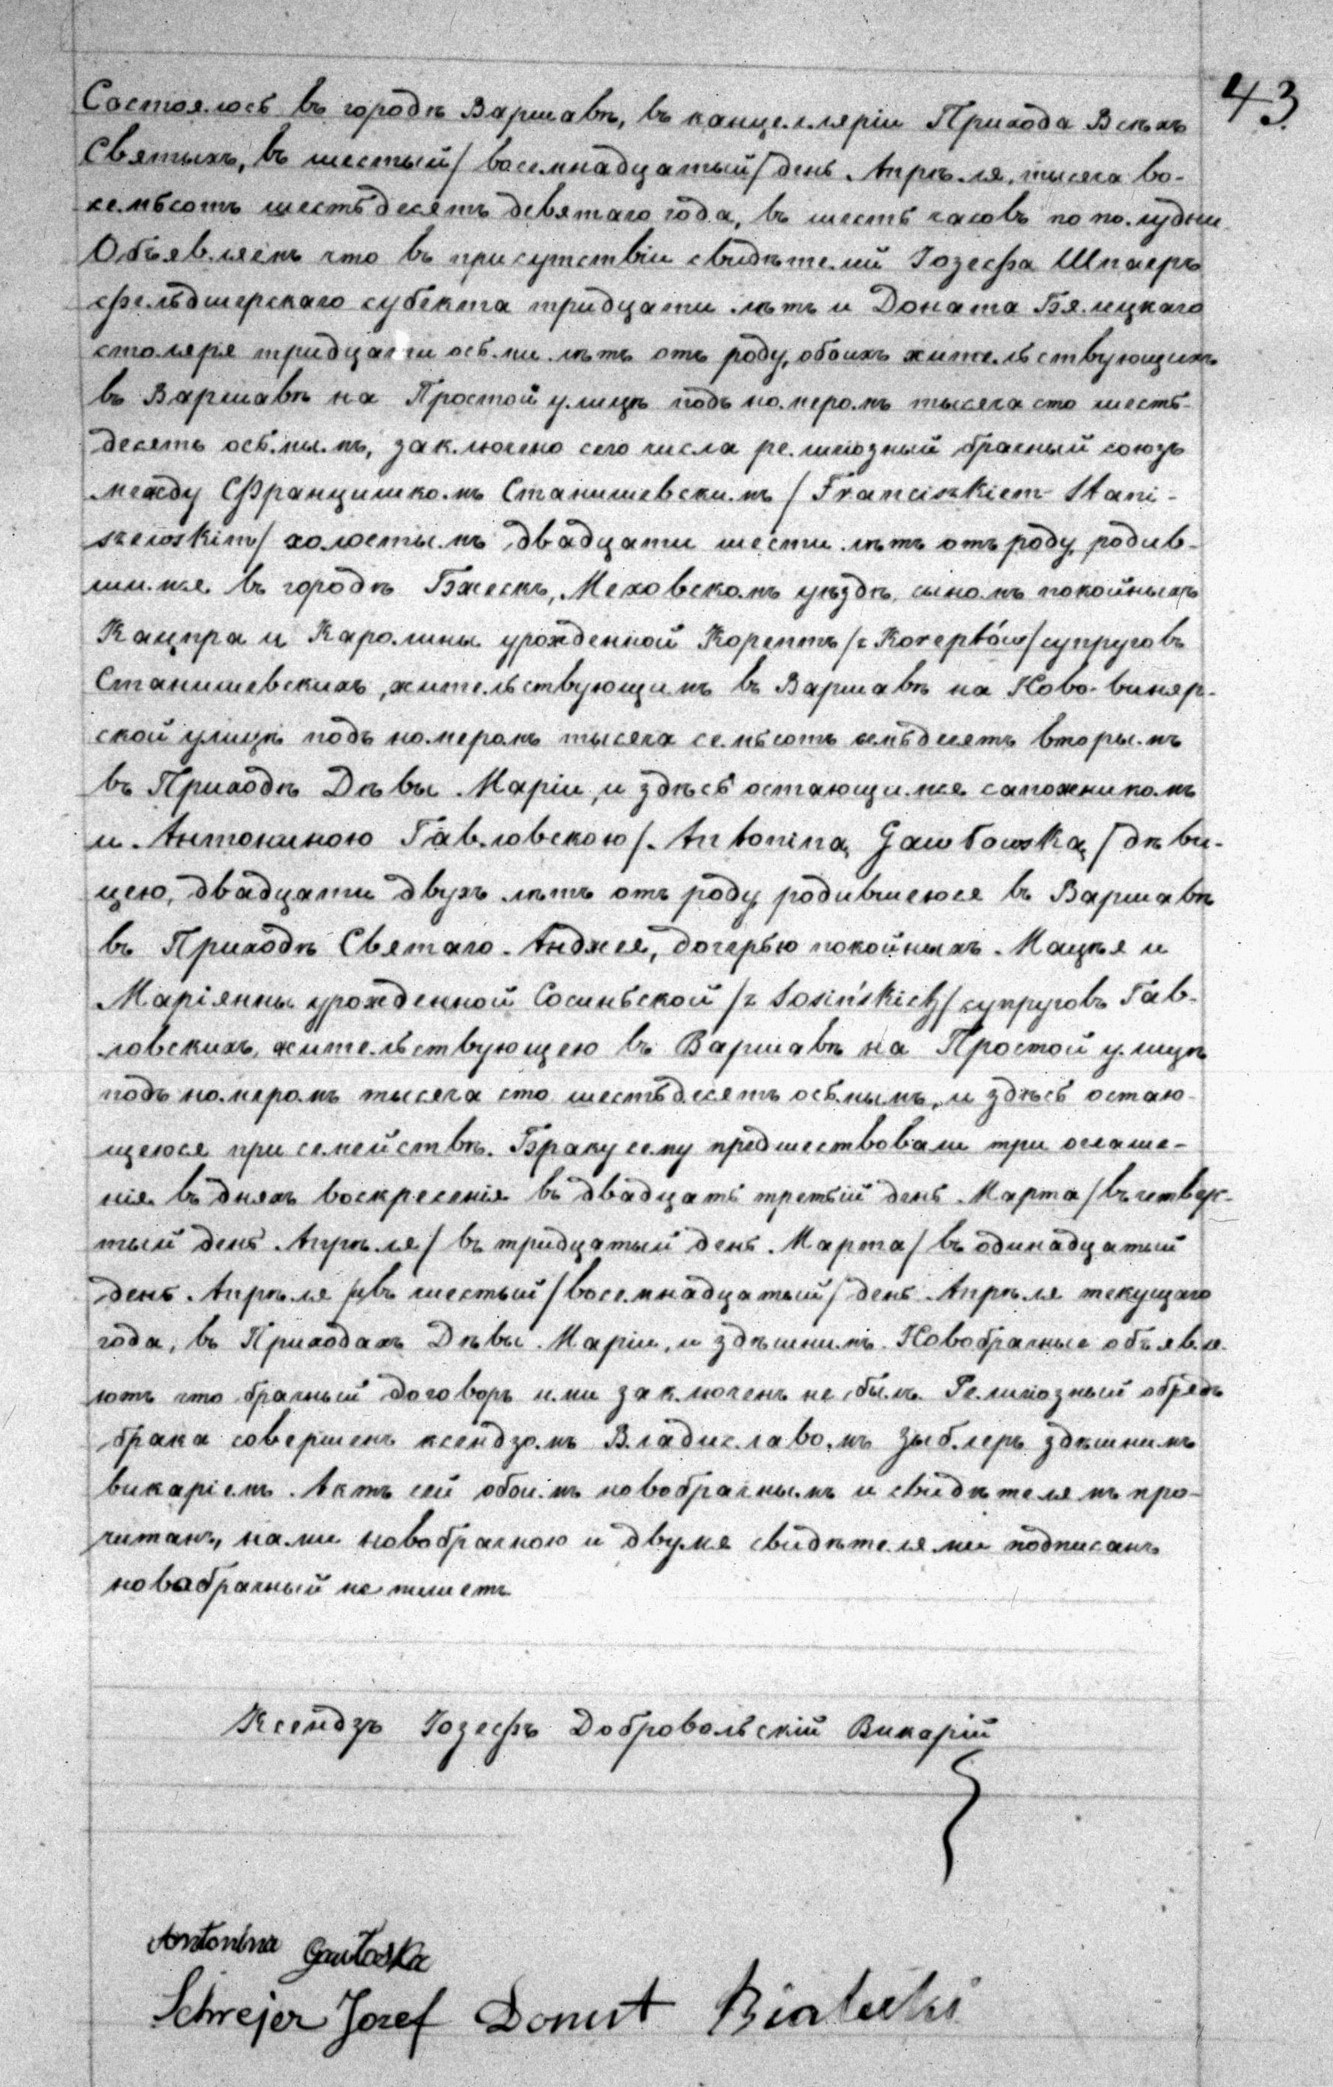 43.
Состоялось въ городѣ Варшавѣ, въ канцелляріи Прихода Всѣхъ
Святыхъ, въ шестый /восемнадцатый/ день Апрѣля, тысяча во-
семьсотъ шестьдесятъ девятаго года, въ шесть часовъ по полудни
Объявляемъ что въ присутствіи свидѣтелей Іозефа Шпаеръ
фельдшерскаго субекта тридцати лѣтъ и Доната Бялецкаго
столяря тридцати осьми лѣтъ отъ роду, обоихъ жительствующихъ
въ Варшавѣ на Простой улицѣ подъ номеромъ тысяча сто шесть-
десятъ осьмымъ, заключено сего числа религіозный брачный союзъ
между Францишкомъ Станишевскимъ /Franciszkiem Stani-
szewskim/ холостымъ двадцати шести лѣтъ отъ роду, родив-
шимся въ городѣ Бжескъ, Меховскомъ уѣздѣ, сыномъ покойныхъ
Кацпра и Каролины урожденной Корептъ /z Koreptów/ супруговъ
Станишевскихъ, жительствующимъ въ Варшавѣ на Ново-виняр-
ской улицѣ подъ номеромъ тысяча семьсотъ семьдесятъ вторымъ
въ Приходѣ Дѣвы Маріи, и здѣсь остающимся сапожникомъ
и Антониною Гавловскою /Antoniną Gawłowską/ дѣви-
цею, двадцати двухъ лѣтъ отъ роду, родившеюся въ Варшавѣ
въ Приходѣ Святаго Анджея, дочерью покойныхъ Мацѣя и
Маріянны урожденной Сосиньской /z Sosińskich/ супруговъ Гав-
ловскихъ, жительствующею въ Варшавѣ на Простой улицѣ
подъ номеромъ тысяча сто шестьдесятъ осьмымъ, и здѣсь остаю-
щеюся при семействѣ. Браку сему предшествовали три оглаше-
нія въ дняхъ воскресенія въ двадцать третій день Марта /въ четвер-
тый день Апрѣля/ въ тридцатый день Марта /въ одинадцатый
день Апрѣля/ и въ шестый /восемнадцатый/ день Апрѣля текущаго
года, въ Приходахъ Дѣвы Маріи, и здѣшнимъ. Новобрачные объявля-
ютъ что брачный договоръ ими заключенъ не былъ. Религіозный обрядъ
брака совершенъ ксендзомъ Владиславомъ Зыблеръ здѣшнимъ
викаріемъ. Актъ сей обоимъ новобрачнымъ и свидѣтелямъ про-
читанъ, нами новобрачною и двумя свидѣтелями подписанъ
новобрачный не пишетъ
Ксендзъ Іозефъ Добровольскій Викарій
Antonina Gawłoska
Schrejer Jozef Donat Bialecki